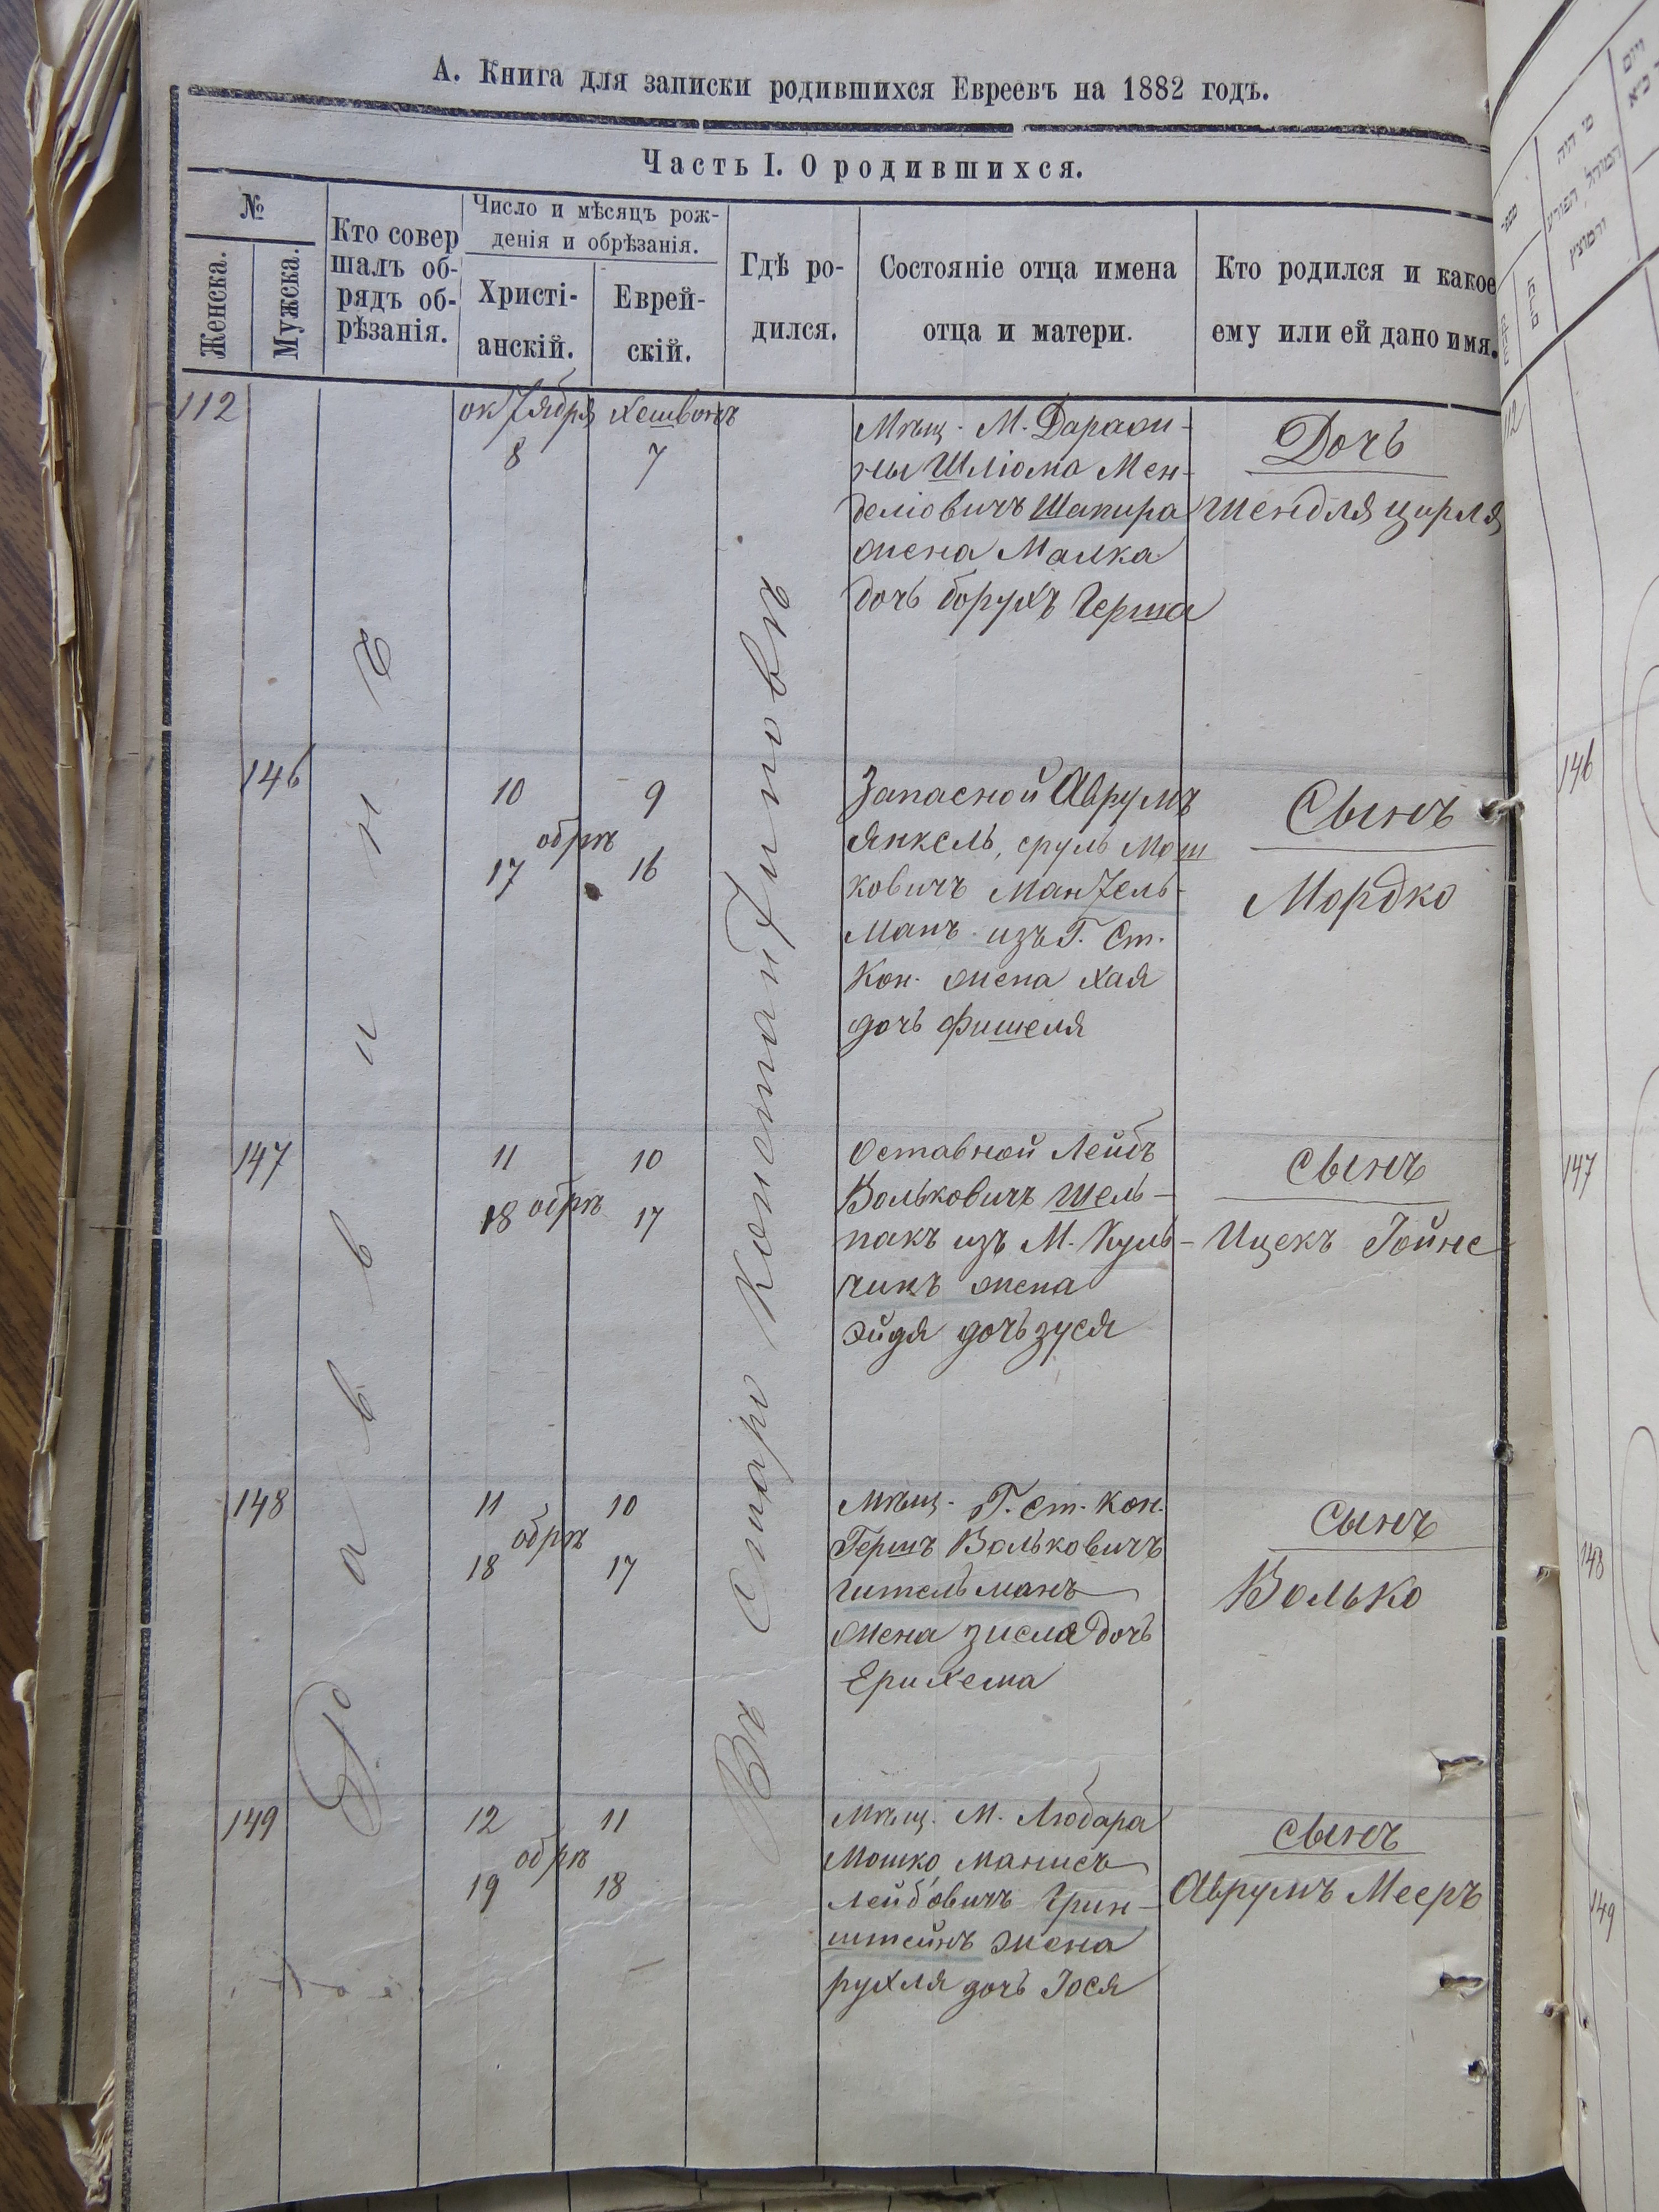 А. Книга для записки родившихся Евреевъ на 1882 годъ.
Часть I. О родившихся.
№
Женска.
Мужска.
Кто совер
шалъ об-
рядъ об-
рѣзанія.
Число и мѣсяцъ рож-
денія и обрѣзанія.
Христі-
анскій.
Еврей-
скій.
Гдѣ ро-
дился.
Состояніе отца имена
отца и матери.
Кто родился и какое
ему или ей дано имя.
Раввинъ
Въ Старо Константиновѣ
112
октября
8
хешвонъ
7
Мѣщ. М. Дарафи-
ны Шліома Мен-
деліовичъ Шапира
жена Малка
дочь борухъ Герша
Дочь
Шендля цирля
146
10
9
обрѣ
17
16
Запасной Аврумъ
Янкель, сруль Мош
ковичъ Мантель-
манъ изъ Г. Ст.
Кон. жена хая
дочь фишеля
Сынъ
Мордко
147
11
10
18 обрѣ 17
Оставной Лейбъ
Вольковичъ Шель-
пакъ изъ М. Куль-
чикъ жена
Эйдя дочь зуся
Сынъ
Ицекъ Іойне
148
11
10
обрѣ
18
17
Мѣщ. Г. Ст. Кон.
Гершъ Вольковичъ
Гительманъ
жена зисля дочь
Ерихема
Сынъ
Волько
149
12
11
обрѣ
19
18
Мѣщ. М. Любара
Мошко манисъ
лейбовичъ Грин-
штейнъ жена
рухля дочь Іося
Сынъ
Аврумъ Мееръ
112
146
147
148
149